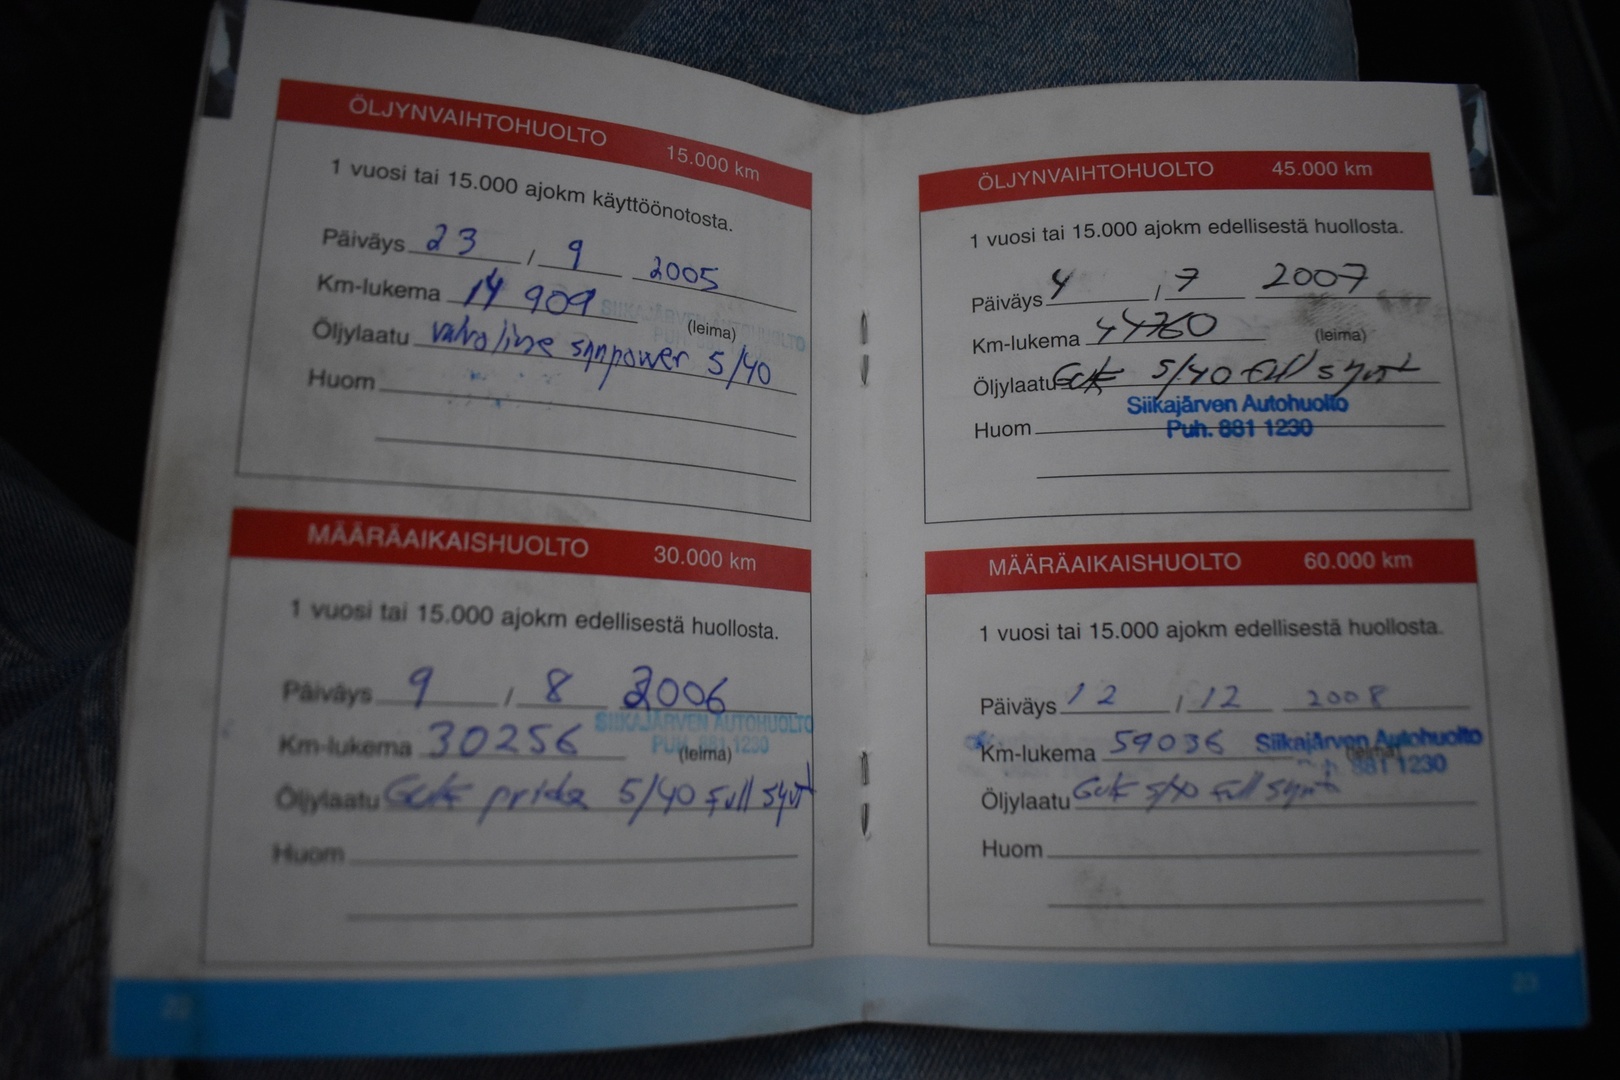 ÖLJYNVAIHTOHUOLTO 15.000 km
1 vuosi tai 15.000 ajokm käyttöönotosta.
Päiväys 23 / 9 2005
Km-lukema 14 909
SIIKAJÄRVEN AUTOHUOLTO
(leima)
Öljylaatu Valvoline synpower 5/40
Huom
MÄÄRÄAIKAISHUOLTO 30.000 km
1 vuosi tai 15.000 ajokm edellisestä huollosta.
Päiväys 9 / 8 2006
SIIKAJÄRVEN AUTOHUOLTO
Km-lukema 30256
PUH. 881 1230
(leima)
Öljylaatu 5/40 Full synt
Huom
ÖLJYNVAIHTOHUOLTO 45.000 km
1 vuosi tai 15.000 ajokm edellisestä huollosta.
Päiväys 4 / 7 2007
Km-lukema 44760 (leima)
Öljylaatu 5/40 Full synt
Siikajärven Autohuolto
Huom
Puh. 881 1230
MÄÄRÄAIKAISHUOLTO 60.000 km
1 vuosi tai 15.000 ajokm edellisestä huollosta.
Päiväys 12 / 12 2008
Km-lukema 59036 Siikajärven Autohuolto
(leima)
881 1230
Öljylaatu 5/40 Full synt
Huom
23